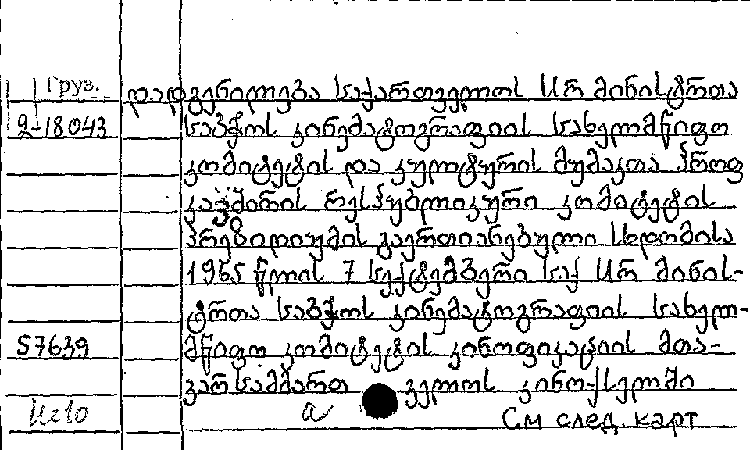 Груз. დადგენილება საქართველოს სსრ მინისტრთა
2-18043 საბჭოს კინემატოგრაფიის სახელმწიფო
კომიტეტის და კულტურის მუშაკთა პროფ
კავშირის რესპუბლიკური კომიტეტის
პრეზიდიუმის გაერთიანებული სხდომისა
1965 წლის 7 სექტემბერი საქ სსრ მინის-
ტრთა საბჭოს კინემატოგრაფიის სახელ-
57639 მწიფო კომიტეტის კინოფიკაციის მთა-
ვარსამმართ ველოს კინოქსელში
а См след. карт